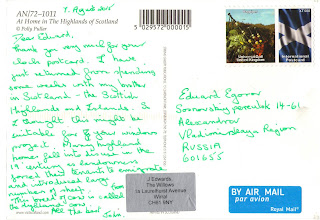 ANI/72-1011
At Home in The Highlands of Scotland
© Polly Pullar
5 029572 000015
7. August 2015
Dear Eduard,
Thank you very much for your
postcard. I have
just returned from spending
some weeks with my sister
in Scotland - the Scottish
Highlands and Islands. So
I thought this might be
suitable for your windows
project. Many highland
homes fell into disuse in the
19th century as landowners
forced their tenants to emigrate
and introduced large
numbers of sheep.
This breed of cow is called
the highland
All the best
International
United Kingdom
International
Postcard
Eduard Egorov
Sosnovsky pereulok 14-61
Alexandrov
Vladimirskaya Region
RUSSIA
601655
J Edwards
The Willows
Birkenhead
Wirral
CH61 9NY
BY AIR MAIL
par avion
Royal Mail